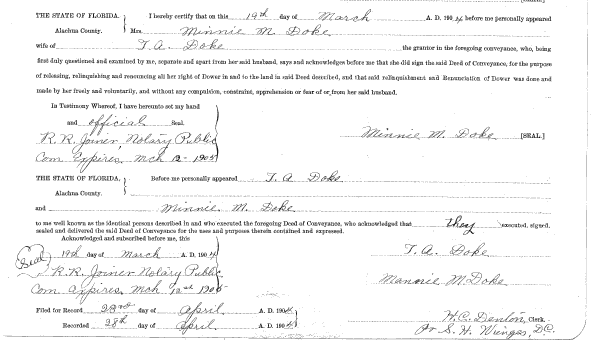 [SEAL]
THE STATE OF FLORIDA. I hereby certify that on this 19th day of March A. D. 1904 before me personally appeared
Alachua County. Mrs. Minnie M. Doke
wife of T. A. Doke the grantor in the foregoing conveyance, who, being
first duly questioned and examined by me, separate and apart from her said husband, says and acknowledges before me that she did sign the said Deed of Conveyance, for the purpose
of releasing, relinquishing and renouncing all her right of Dower in and to the land in said Deed described, and that said relinquishment and Renunciation of Dower was done and
made by her freely and voluntarily, and without any compulsion, constraint, apprehension or fear of or from her said husband.
In Testimony Whereof, I have hereunto set my hand
and official Seal.
R. R. Joiner, Notary Public Minnie M. Doke [SEAL]
Com Expires, Mch 12- 1905
THE STATE OF FLORIDA. Before me personally appeared T. A Doke
Alachua County.
and Minnie M. Doke
to me well known as the identical persons described in and who executed the foregoing Deed of Conveyance, who acknowledged that they executed, signed,
sealed and delivered the said Deed of Conveyance for the uses and purposes therein contained and expressed.
Acknowledged and subscribed before me, this
19th day of March A. D. 1904 T. A. Doke
Seal
R. R. Joiner Notary Public Mannie M. Doke
Com Expires, Mch 12nd 1905
Filed for Record 28th day of April A. D. 1904 H. C. Denton, Clerk.
Recorded 28th day of April A. D. 1904 Pr S. H. Wienges, D.C.